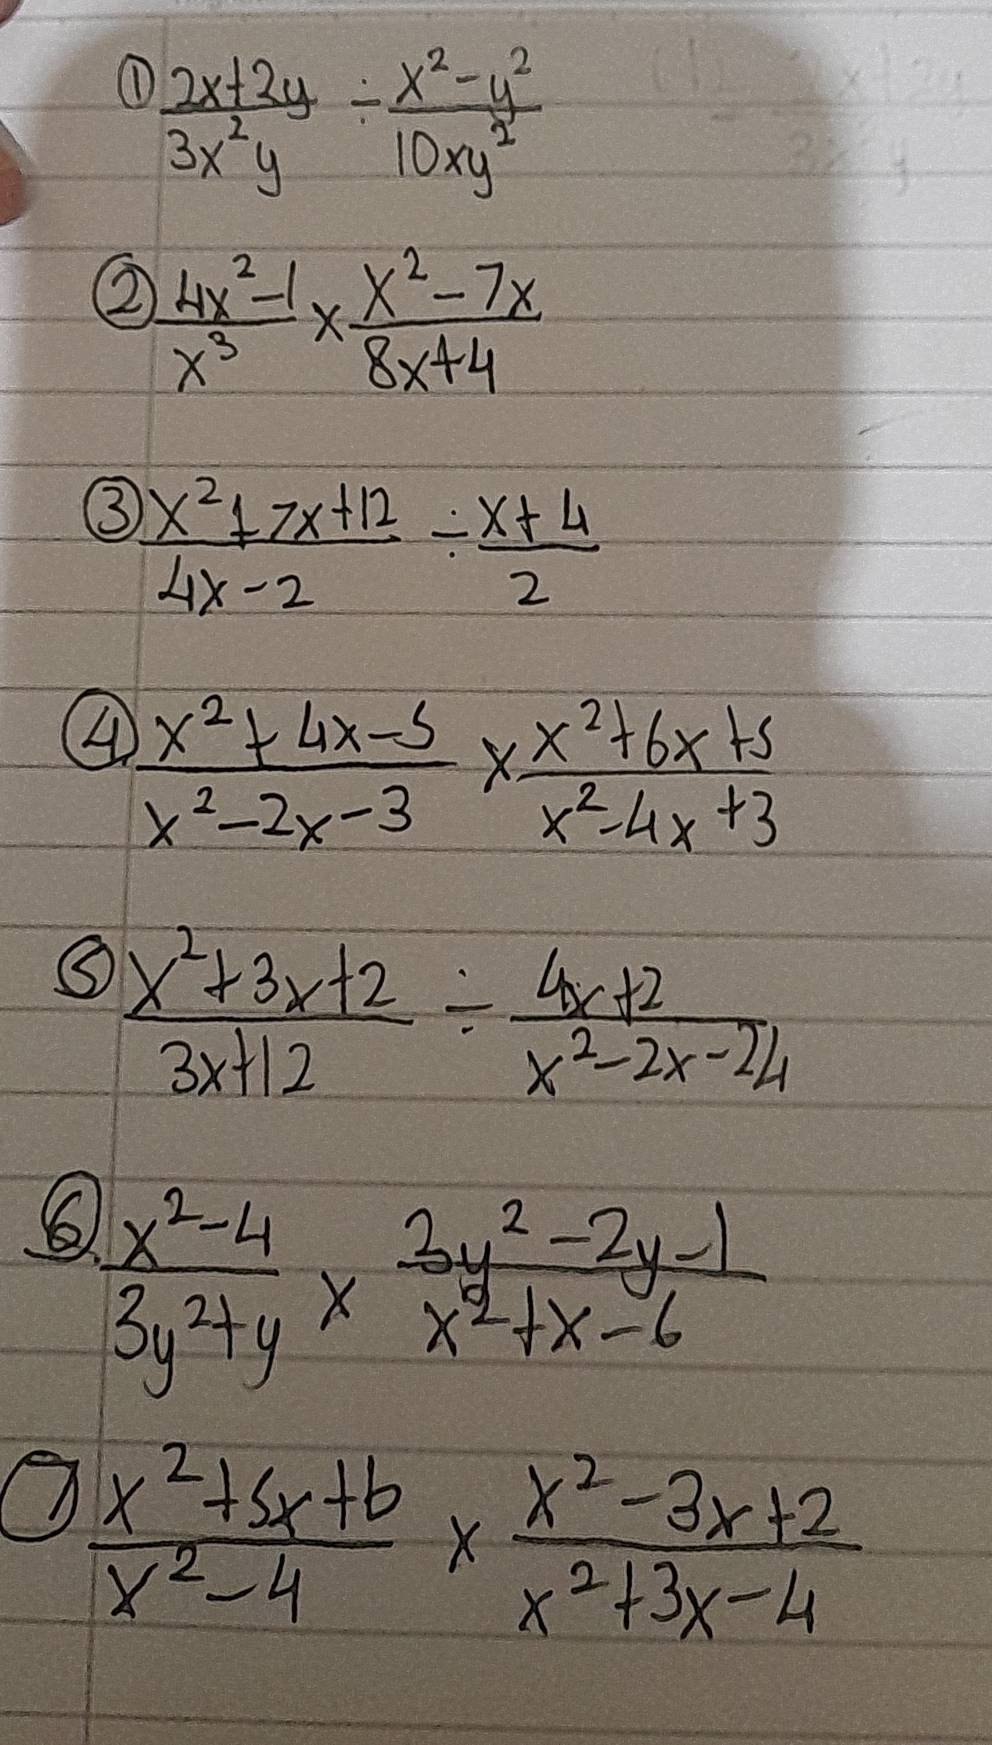 ① (2x+2y)/(3x²y) ÷ (x²-y²)/(10xy²)
② (4x²-1)/(x³) × (x²-7x)/(8x+4)
③ (x²+7x+12)/(4x-2) ÷ (x+4)/(2)
④ (x²+4x-5)/(x²-2x-3) × (x²+6x+5)/(x²-4x+3)
⑤ (x²+3x+2)/(3x+12) ÷ (4x+2)/(x²-2x-24)
⑥ (x²-4)/(3y²+y) × (3y²-2y-1)/(x²+x-6)
⑦ (x²+5x+6)/(x²-4) × (x²-3x+2)/(x²+3x-4)